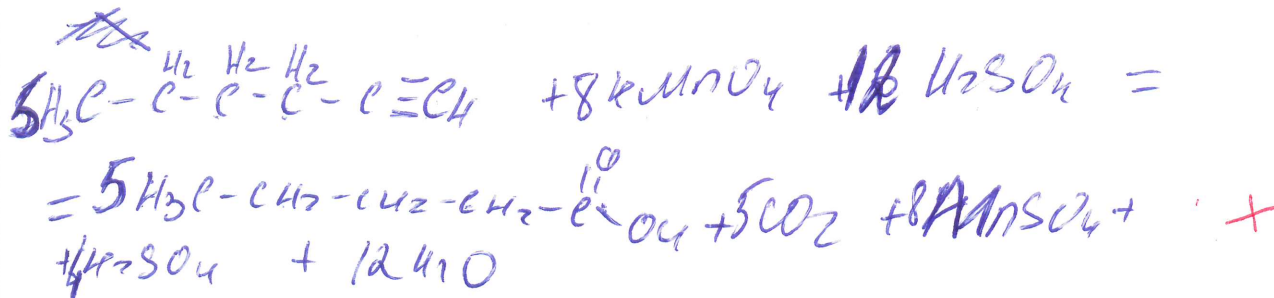 H₂ H₂ H₂
5H₃C – C – C – C – C ≡ CH + 8KMnO₄ + 12 H₂SO₄ =
O
= 5H₃C – CH₂ – CH₂ – CH₂ – C OH + 5CO₂ + 8MnSO₄ + +
+ 4K₂SO₄ + 12H₂O